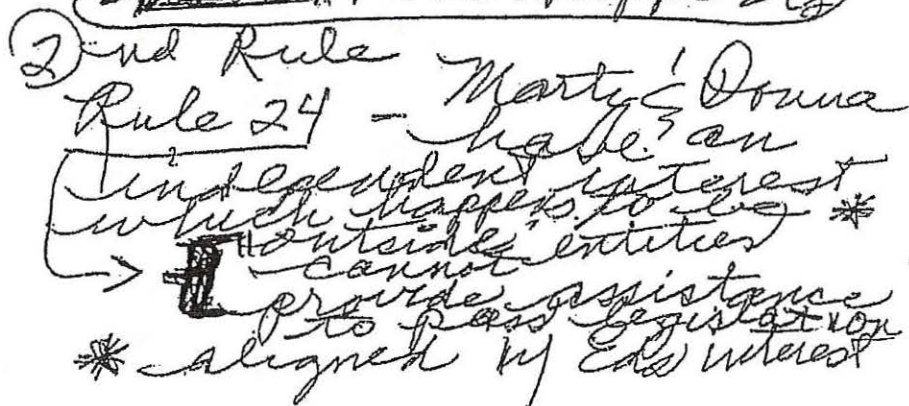 ② nd Rule
Rule 24 - Marty & Donna
have an
independent interest
which happens to be *
"outside" entities
cannot
provide assistance
to pass legislation
* aligned w/ Ed's interest